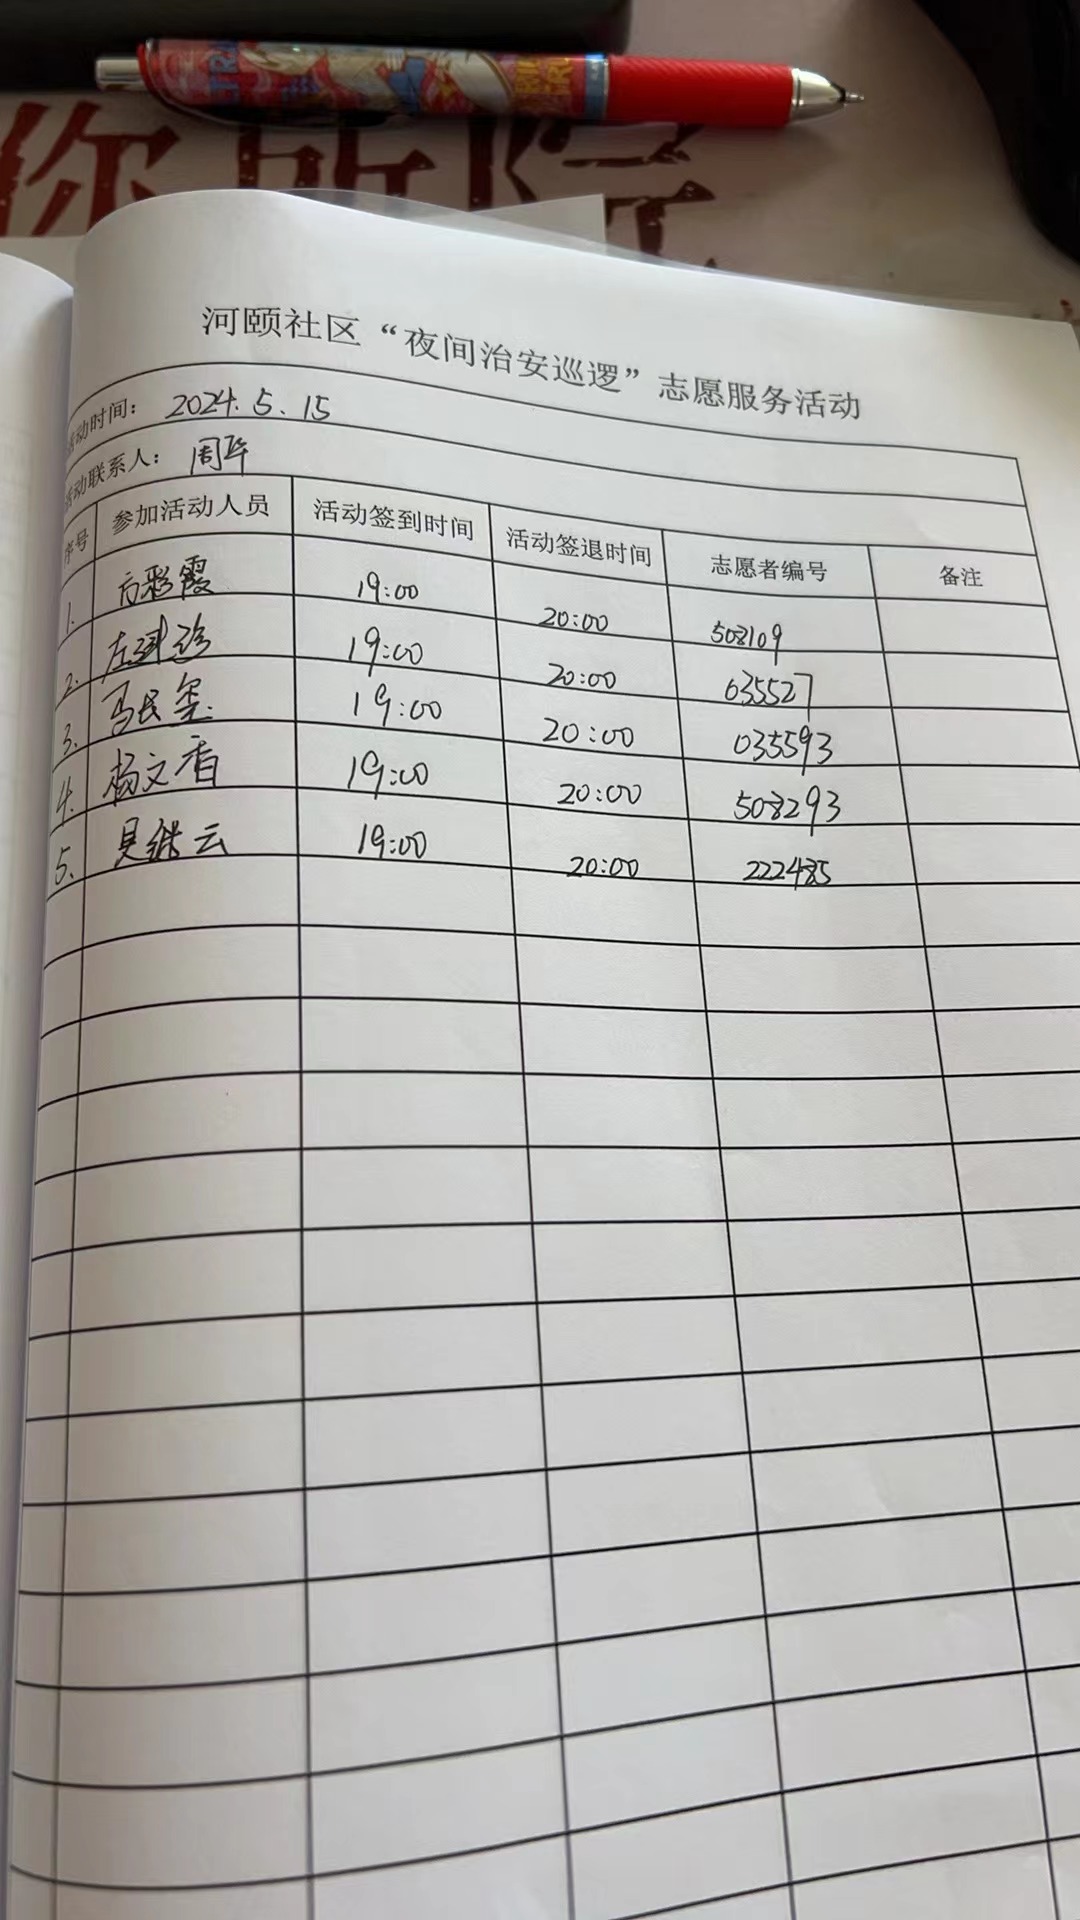 你所
河颐社区“夜间治安巡逻”志愿服务活动
活动时间： 2024.5.15
活动联系人： 周华
序号 参加活动人员 活动签到时间 活动签退时间 志愿者编号 备注
1. 方彩霞 19:00 20:00 508109
2. 左 珍 19:00 20:00 035527
3. 马民 19:00 20:00 035593
4. 杨文香 19:00 20:00 508293
5. 吴继云 19:00 20:00 222485